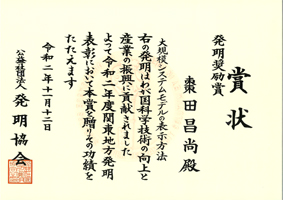 賞状
発明奨励賞
棗田昌尚殿
大規模システムモデルの表示方法
右の発明はわが国科学技術の向上と
産業の振興に貢献されました
よって令和二年度関東地方発明
表彰において本賞を贈りその功績を
たたえます
令和二年十一月十二日
公益社団法人 発明協会